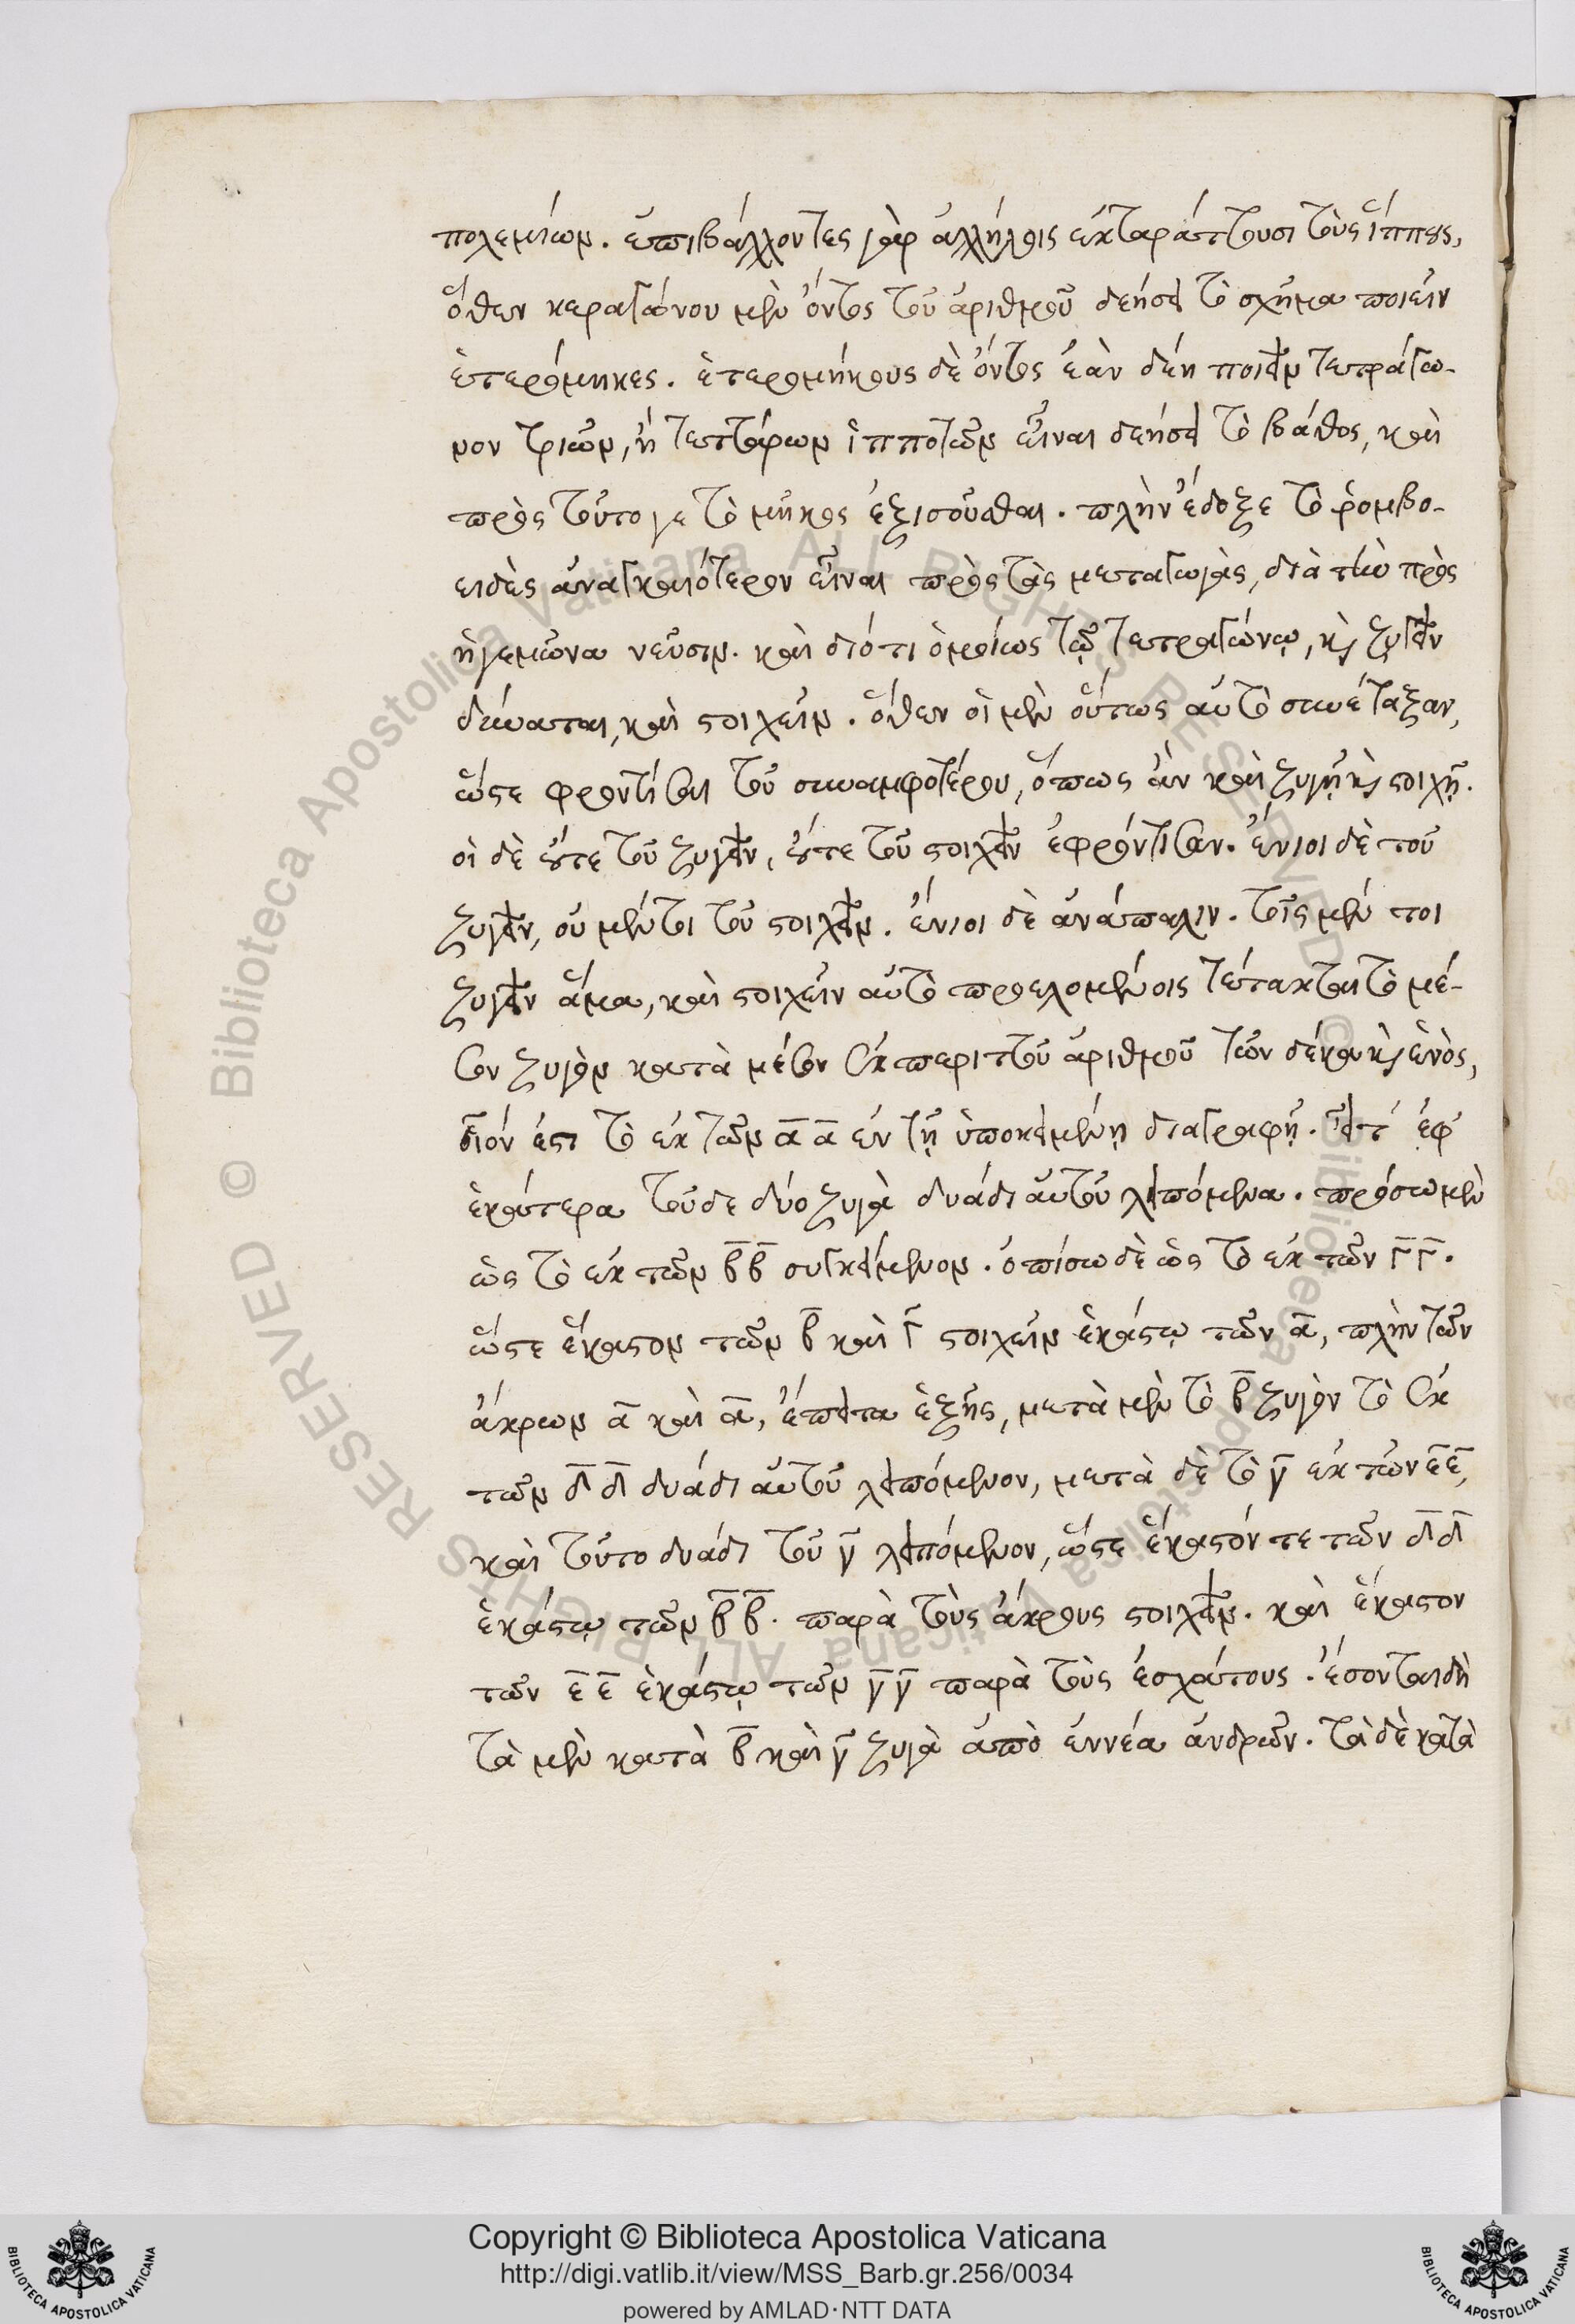 πολεμίων. ἐπιβάλλοντες γὰρ ἀλλήλοις ἐκταράττουσι τοὺς ἵππους,
ὅθεν κεραγώνου μὲν ὄντος τοῦ ἀριθμοῦ δεήσει τὸ σχῆμα ποιεῖν
ἑτερόμηκες. ἑτερομήκους δὲ ὄντος ἐὰν δέη ποιεῖν τετράγω-
νον τριῶν, ἢ τεττάρων ἱπποτῶν εἶναι δεήσει τὸ βάθος, καὶ
πρὸς τοῦτο γε τὸ μῆκος ἐξισοῦσθαι. πλὴν ἔδοξε τὸ ῥομβο-
ειδὲς ἀναγκαιότερον εἶναι πρὸς τὰς μεταγωγὰς, διὰ τὴν πρὸς
ἡγεμῶνα νεῦσιν. καὶ διότι ὁμοίως τῷ τετραγώνῳ, καὶ ζυγεῖν
δύναται, καὶ στοιχεῖν. ὅθεν οἱ μὲν οὕτως αὐτὸ συνέταξαν,
ὥστε φροντίσαι τοῦ συναμφοτέρου, ὅπως ἂν καὶ ζυγῇ καὶ στοιχῇ.
οἱ δὲ οὔτε τοῦ ζυγεῖν, οὔτε τοῦ στοιχεῖν ἐφρόντισαν. ἔνιοι δὲ τοῦ
ζυγεῖν, οὐ μέντοι τοῦ στοιχεῖν. ἔνιοι δὲ ἀνάπαλιν. τοῖς μέν τοι
ζυγεῖν ἅμα, καὶ στοιχεῖν αὐτὸ προελομένοις τέτακται τὸ μέ-
σον ζυγὸν κατὰ μέσον ἐκ περιττοῦ ἀριθμοῦ τῶν δέκα καὶ ἑνὸς,
οἷόν ἐστι τὸ ἐκ τῶν α̅ α̅ ἐν τῇ ὑποκειμένῃ διαγραφῇ. εἶτ' ἐφ'
ἑκάτερα τοῦδε δύο ζυγὰ δυάδι αὐτοῦ λειπόμενα. πρόσω μὲν
ὡς τὸ ἐκ τῶν β̅ β̅ συγκείμενον. ὀπίσω δὲ ὡς τὸ ἐκ τῶν γ̅ γ̅.
ὥστε ἕκαστον τῶν β̅ καὶ γ̅ στοιχεῖν ἑκάστῳ τῶν α̅, πλὴν τῶν
ἄκρων α̅ καὶ α̅, ἔπειτα ἑξῆς, μετὰ μὲν τὸ β̅ ζυγὸν τὸ ἐκ
τῶν δ̅ δ̅ δυάδι αὐτοῦ λειπόμενον, μετὰ δὲ τὸ γ̅ ἐκ τῶν ε̅ ε̅,
καὶ τοῦτο δυάδι τοῦ γ̅ λειπόμενον, ὥστε ἕκαστόν τε τῶν δ̅ δ̅
ἑκάστῳ τῶν β̅ β̅. παρὰ τοὺς ἄκρους στοιχεῖν. καὶ ἕκαστον
τῶν ε̅ ε̅ ἑκάστῳ τῶν γ̅ γ̅ παρὰ τοὺς ἐσχάτους. ἔσονται δὴ
τὰ μὲν κατὰ β̅ καὶ γ̅ ζυγὰ ἀπὸ ἐννέα ἀνδρῶν. τὰ δὲ κατὰ
Copyright © Biblioteca Apostolica Vaticana
http://digi.vatlib.it/view/MSS_Barb.gr.256/0034
powered by AMLAD·NTT DATA